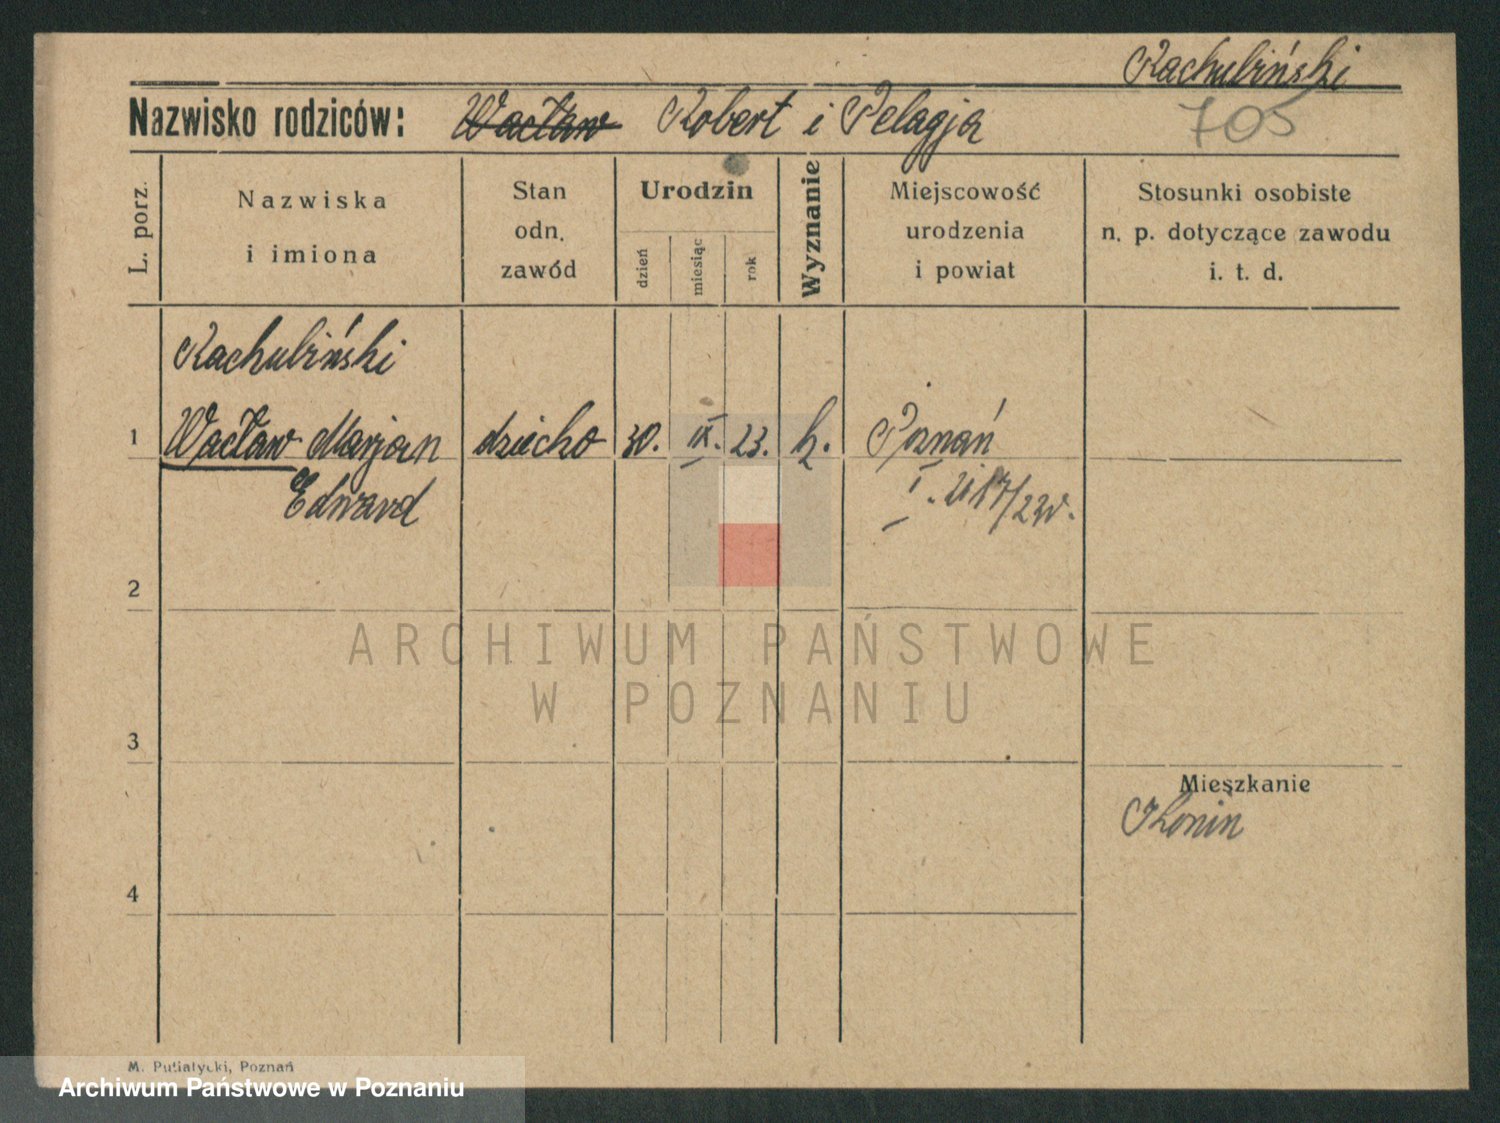 Rachubiński
Nazwisko rodziców: Wacław Robert i Pelagja
705
L. porz.
Nazwiska
i imiona
Stan
odn.
zawód
Urodzin
dzień
miesiąc
rok
Wyznanie
Miejscowość
urodzenia
i powiat
Stosunki osobiste
n. p. dotyczące zawodu
i. t. d.
Rachubiński
1 Wacław Marjan dziecko 30. IX. 23. k. Poznań
Edward
I.
2
ARCHIWUM PAŃSTWOWE
W POZNANIU
3
Mieszkanie
Konin
4
M. Putiatycki, Poznań
Archiwum Państwowe w Poznaniu